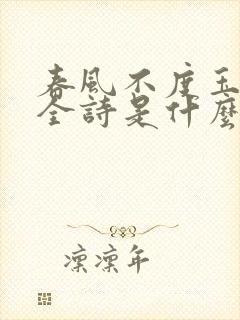 春風不度玉
全詩是什麼
凜凜年